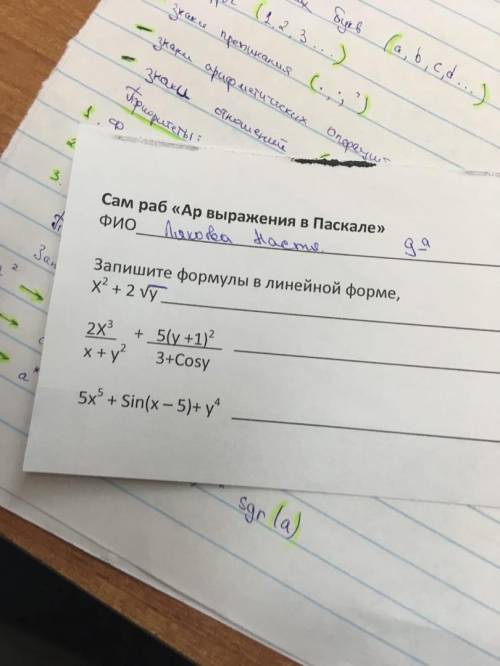 букв (a, b, c, d...)
(1, 2, 3...)
знаки препинания (. , ; ')
знаки арифметических операций
знаки отношений
Приоритеты:
1.
2
3.
Сам раб «Ар выражения в Паскале»
ФИО Настя 9-а
Запишите формулы в линейной форме,
X² + 2 √y
2X³/(x + y²) + 5(y +1)²/(3+Cosy)
5x⁵ + Sin(x – 5)+ y⁴
sqr (a)